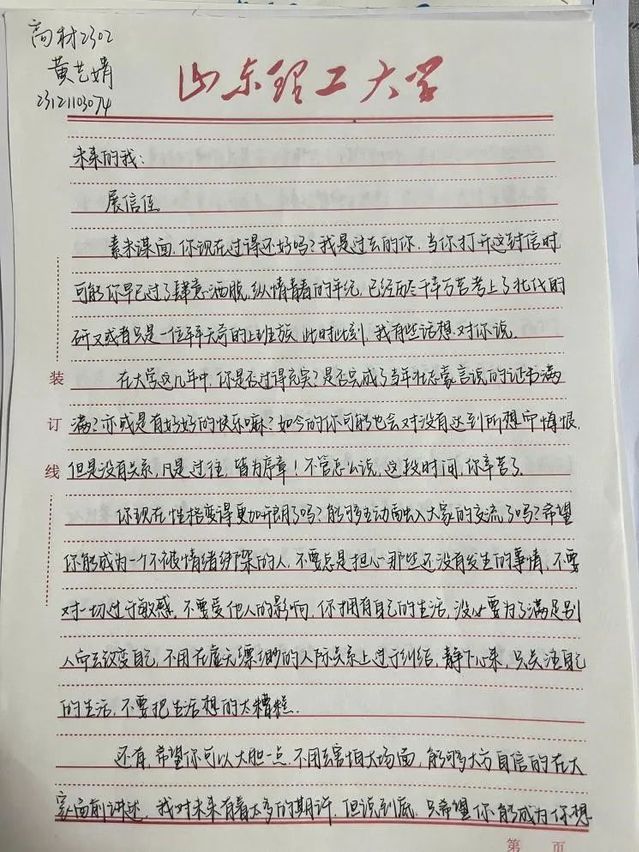 高材2302
黄艺婧
23121103074
山东理工大学
未来的我：
展信佳
素未谋面，你现在过得还好吗？我是过去的你，当你打开这封信时
可能你早已过了肆意洒脱，纵情青春的年纪，已经历尽千辛万苦考上了北化的
研又或者只是一位平平无奇的上班族，此时此刻，我有些话想对你说。
在大学这几年中，你是否过得充实？是否完成了当年壮志豪言说的证书满
满？亦或是有好好的快乐嘛？如今的你可能也会对没有达到所想而悔恨，
但是没有关系，凡是过往，皆为序章！不管怎么说，这段时间，你辛苦了。
你现在性格变得更加开朗了吗？能够主动融入大家的交流了吗？希望
你能成为一个不被情绪绑架的人，不要总是担心那些还没有发生的事情，不要
对一切过于敏感，不要受他人的影响，你拥有自己的生活，没必要为了满足别
人而去改变自己，不用在虚无缥缈的人际关系上过于纠结，静下心来，只关注自己
的生活，不要把生活想的太糟糕。
还有，希望你可以大胆一点，不用去害怕大场面，能够大方自信的在大
家面前讲述，我对未来有着太多的期许，但说到底，只希望你能成为你想
装
订
线
第 页